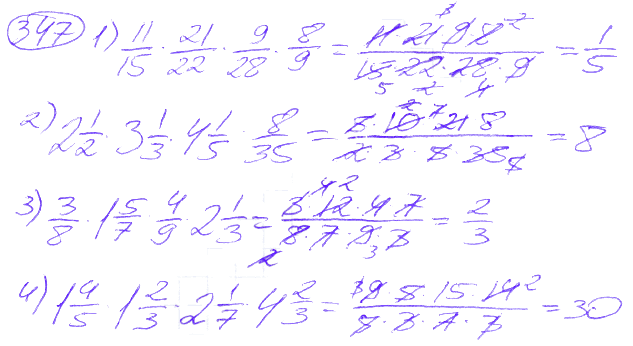 347 1) 11/15 · 21/22 · 9/28 · 8/9 = 11·21·9·8/15·22·28·9 = 1/5
2) 2 1/2 · 3 1/3 · 4 1/5 · 8/35 = 5·10·21·8/2·3·5·35 = 8
3) 3/8 · 1 5/7 · 4/9 · 2 1/3 = 3·12·4·7/8·7·9·3 = 2/3
4) 1 4/5 · 1 2/3 · 2 1/7 · 4 2/3 = 9·5·15·14/5·3·7·3 = 30